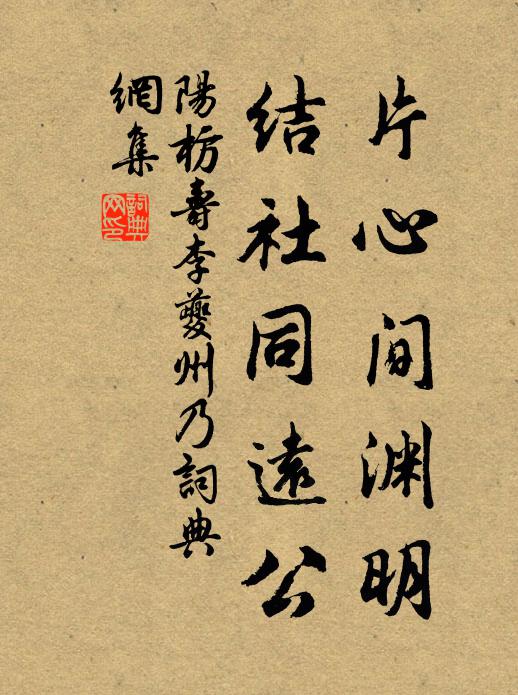 片心间渊明
结社同遠公
陽枋壽李夔州乃詞典
網集
詞典
网印